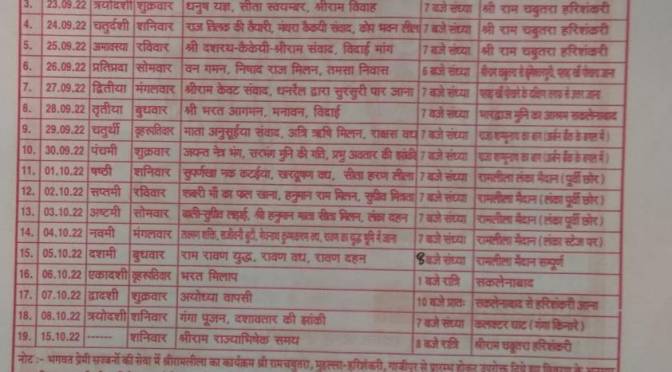 3. 23.09.22 त्रयोदशी शुक्रवार धनुष यज्ञ, सीता स्वयम्बर, श्रीराम विवाह 7 बजे संध्या श्री राम चबुतरा हरिशंकरी
4. 24.09.22 चतुर्दशी शनिवार राज तिलक की तैयारी, मंथरा कैकयी संवाद, कोप भवन लीला 7 बजे संध्या श्री राम चबुतरा हरिशंकरी
5. 25.09.22 अमावस्या रविवार श्री दशरथ-कैकेयी-श्रीराम संवाद, विदाई मांग 7 बजे संध्या श्री राम चबुतरा हरिशंकरी
6. 26.09.22 प्रतिप्रदा सोमवार वन गमन, निषाद राज मिलन, तमसा निवास 6 बजे संध्या
7. 27.09.22 द्वितीया मंगलवार श्रीराम केवट संवाद, धनरैल द्वारा सुरसुरी पार जाना 7 बजे संध्या
8. 28.09.22 तृतीया बुधवार श्री भरत आगमन, मनावन, विदाई 7 बजे संध्या भारद्वाज मुनि का आश्रम सकलेनाबाद
9. 29.09.22 चतुर्थी वृहस्पतिवार माता अनुसूईया संवाद, अत्रि ऋषि मिलन, राक्षस वध 7 बजे संध्या
10. 30.09.22 पंचमी शुक्रवार जयन्त नेत्र भंग, सरभंग मुनि की गति, प्रभु अवतार की झांकी 7 बजे संध्या
11. 01.10.22 षष्ठी शनिवार सुपर्णखा नक कटईया, खरदूषण वध, सीता हरण लीला 7 बजे संध्या रामलीला लंका मैदान (पूर्वी छोर)
12. 02.10.22 सप्तमी रविवार शबरी माँ का फल खाना, हनुमान राम मिलन, सुग्रीव मित्रता 7 बजे संध्या रामलीला मैदान (लंका पूर्वी छोर)
13. 03.10.22 अष्टमी सोमवार बाली-सुग्रीव लड़ाई, श्री हनुमान माता सीता मिलन, लंका दहन 7 बजे संध्या रामलीला मैदान (लंका पूर्वी छोर)
14. 04.10.22 नवमी मंगलवार लक्ष्मण शक्ति, संजीवनी बूटी, मेघनाथ कुम्भकरण वध, रावण का युद्ध भूमि में जाना 7 बजे संध्या रामलीला मैदान (लंका स्टेज पर)
15. 05.10.22 दशमी बुधवार राम रावण युद्ध, रावण वध, रावण दहन 8 बजे संध्या रामलीला मैदान सम्पूर्ण
16. 06.10.22 एकादशी वृहस्पतिवार भरत मिलाप 1 बजे रात्रि सकलेनाबाद
17. 07.10.22 द्वादशी शुक्रवार अयोध्या वापसी 10 बजे प्रातः सकलेनाबाद से हरिशंकरी आना
18. 08.10.22 त्रयोदशी शनिवार गंगा पूजन, दशावतार की झांकी 7 बजे संध्या कलक्टर घाट (गंगा किनारे)
19. 15.10.22 ------ शनिवार श्रीराम राज्याभिषेक समय 8 बजे रात्रि श्रीराम चबूतरा हरिशंकरी
नोट :- भगवत प्रेमी सज्जनों की सेवा में श्रीरामलीला का कार्यक्रम श्री रामचबुतरा, मुहल्ला-हरिशंकरी, गाजीपुर से प्रारम्भ होकर उपरोक्त दिये गये विवरण के अनुसार